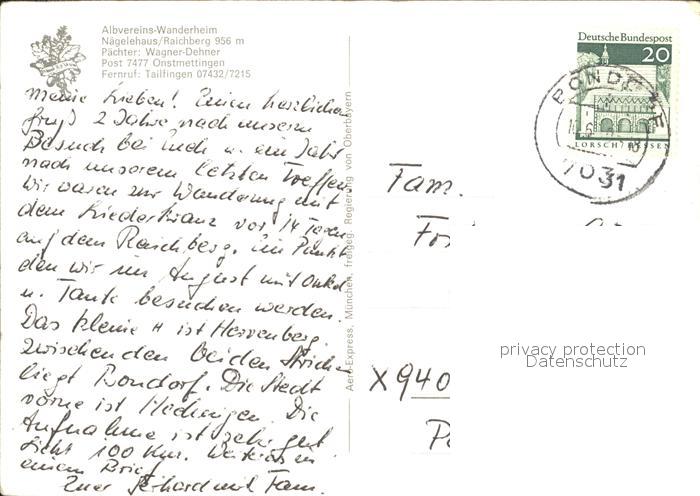 Albvereins-Wanderheim
Nägelehaus/Raichberg 956 m
Pächter: Wagner-Dehner
Post 7477 Onstmettingen
Fernruf: Tailfingen 07432/7215
Meine Lieben! Einen herzlichen
Gruß 2 Jahre nach unserem
Besuch bei Euch u. ein Jahr
nach unserem letzten Treffen.
Wir waren zur Wanderung mit
dem Liederkranz vor 14 Tagen
auf dem Raichberg. Ein Punkt
den wir im August mit Onkel
u. Tante besuchen werden.
Das kleine H ist Herrenberg.
Zwischen den beiden Strichen
liegt Bondorf. Die Stadt
vorne ist Hechingen. Die
Aufnahme ist sehr gut
Sicht 100 Km. Weiteres in
einem Brief
Euer Gerhard mit Fam.
Aero-Express, München, freigeg. Regierung von Oberbayern
Deutsche Bundespost
20
LORSCH/HESSEN
BONDORF
7031
Fam.
X940
privacy protection
Datenschutz